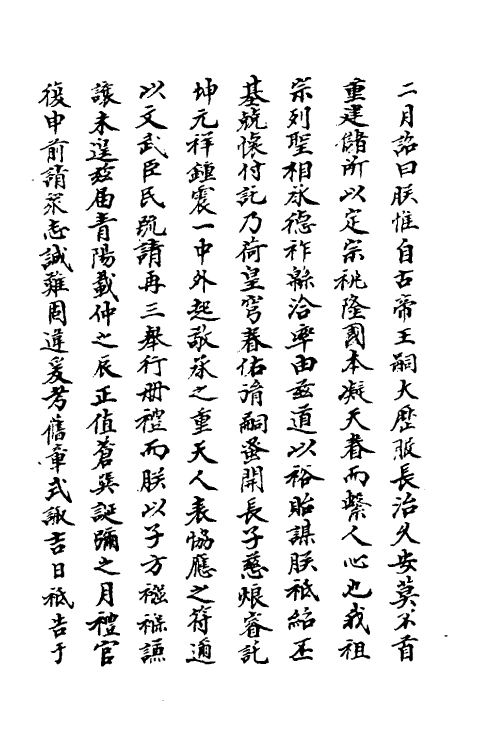 二月詔曰朕惟自古帝王嗣大歷服長治久安莫不首
重建儲所以定宗祧隆國本凝天眷而繫人心也我祖
宗列聖相承德祚緜洽率由茲道以裕貽謀朕祗紹丕
基兢懷付託乃荷皇穹眷佑誕嗣蚤開長子慈烺睿託
坤元祥鍾震一中外起敬承之重天人表恊應之符邇
以文武臣民疏請再三舉行册禮而朕以子方襁褓謙
讓未遑茲届青陽載仲之辰正值蒼龍誕彌之月禮官
復申前請眾志誠難固違爰考舊章式諏吉日祗告于